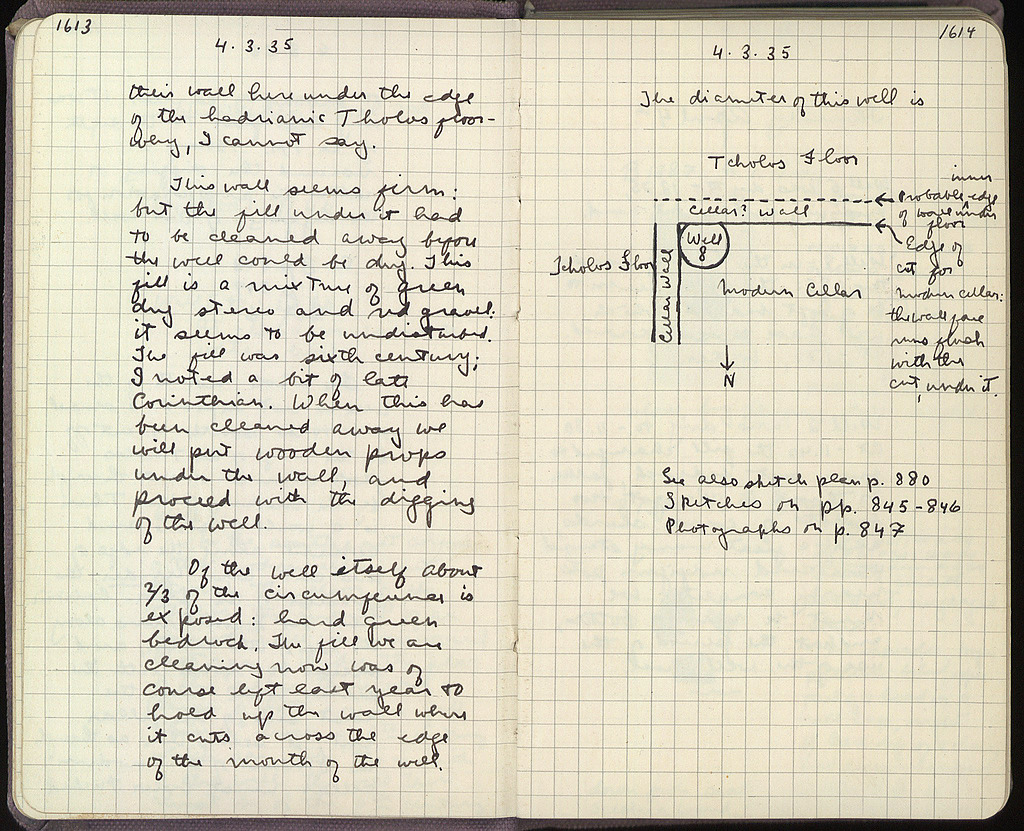 1613
4.3.35
their wall here under the edge
of the hadrianic Tholos floor-
way, I cannot say.
This wall seems firm:
but the fill under it had
to be cleaned away before
the well could be dug. This
fill is a mixture of green
dug stereo and red gravel:
it seems to be undisturbed.
The fill was sixth century;
I noted a bit of late
Corinthian. When this has
been cleaned away we
will put wooden props
under the wall, and
proceed with the digging
of the well.
Of the well itself about
2/3 of the circumference is
exposed: hard green
bedrock. The fill we are
cleaning now was of
course left last year to
hold up the wall where
it cuts across the edge
of the mouth of the well.
1614
4.3.35
The diameter of this well is
Tcholos Floor
inner
← Probable edge
of wall under
floor
Cellar? wall
← Edge of
cut for
modern cellar:
the wall face
runs flush
with the
cut, under it.
Well
8
Tcholos Floor
Cellar Wall
Modern Cellar
N
See also sketch plan p. 880
Sketches on pp. 845-846
Photographs on p. 847